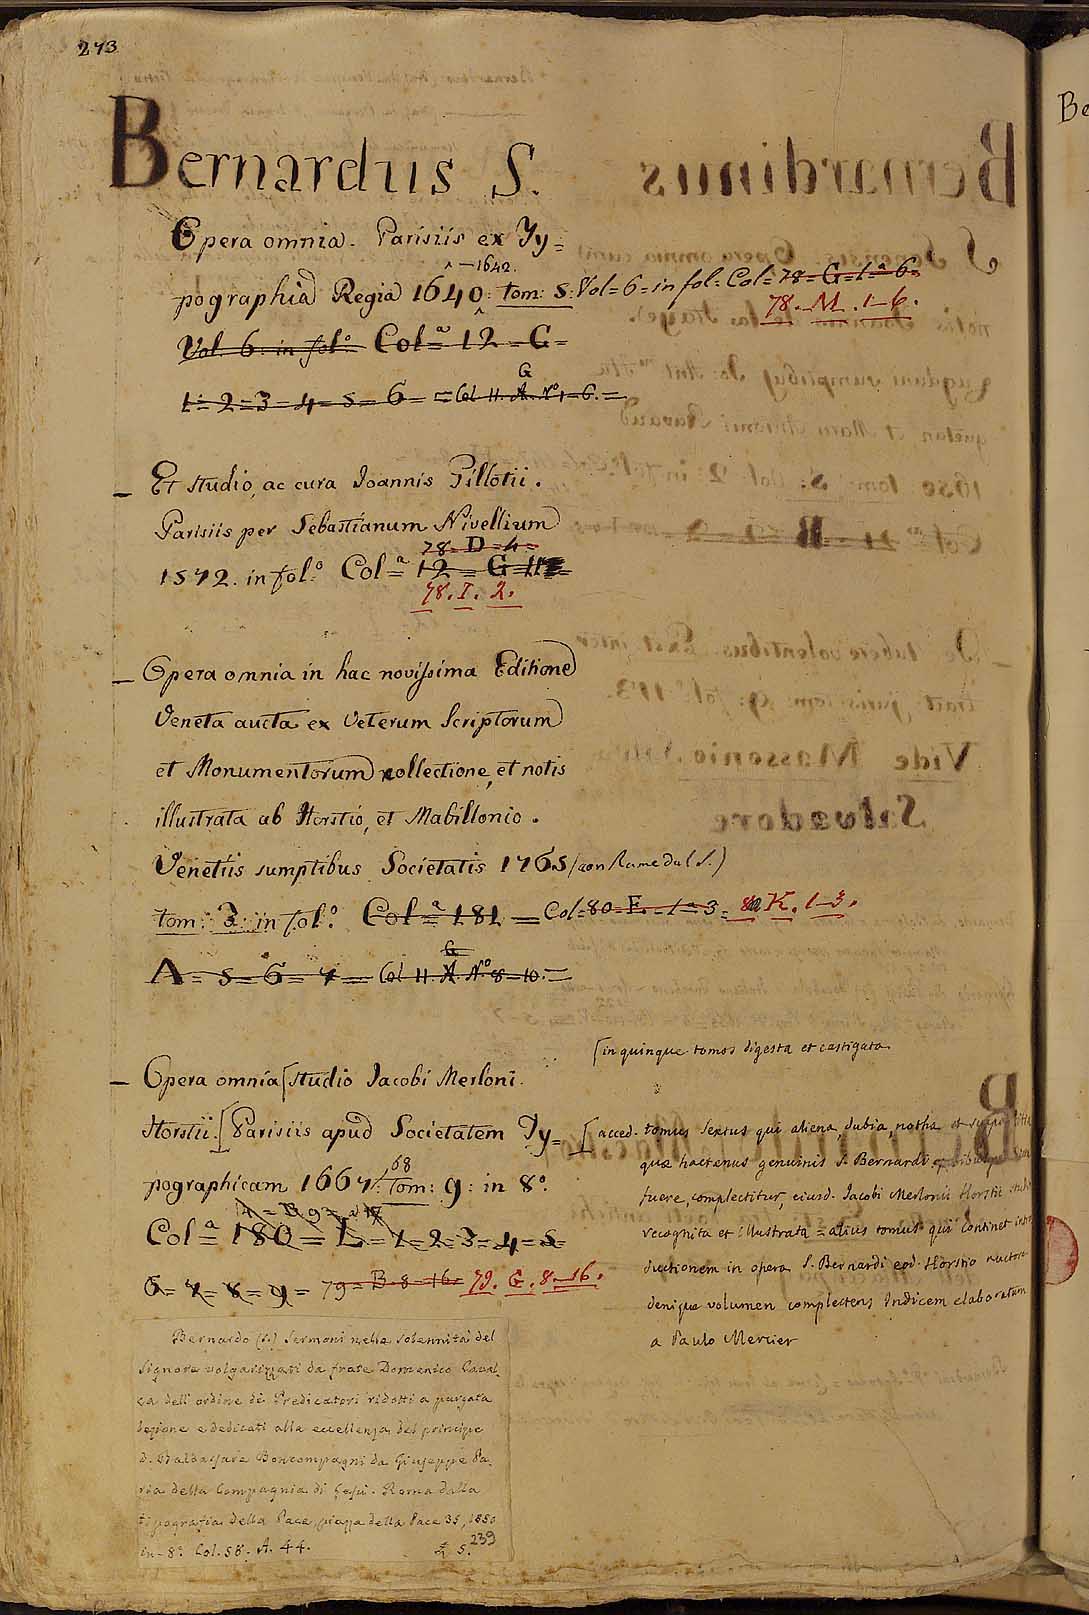 273
Bernardus S.
Opera omnia. Parisiis ex Ty=
^—1642.
pographia Regia 1640: tom: 5: Vol=6=in fol: Col=78=G=1=a=6=
78. M. 1-6.
Vol: 6: in fol.º Col=ª 12=G=
G
1=2=3=4=5=6= =Col 11. A. Nº 1=6.=
— Et studio, ac cura Joannis Gillotii.
Parisiis per Sebastianum Nivellium
78=D=4=
1572. in fol.º Col=ª 12=G=11
78. I. 2.
— Opera omnia in hac novissima Editione
Veneta aucta ex Veterum Scriptorum
et Monumentorum collectione, et notis
illustrata ab Horstio, et Mabillonio.
Venetiis sumptibus Societatis 1765 (con Rame dal S.)
tom: 3: in fol.º Col=ª 181 = Col=80=E=1=a=3= 80 K. 1-3.
G
A=5=6=7= Col 11. A. Nº 8=10.=
[in quinque tomos digesta et castigata
— Opera omnia [studio Jacobi Merloni
Horstii. [Parisiis apud Societatem Ty=
68
pographicam 1667: Tom: 9: in 8º.
11=B 9=a 17
Col=ª 180=L=1=2=3=4=5=
6=7=8=9= 79=B=8=16= 79. G. 8-16.
[acced. tomus sextus qui aliena, dubia, notha et
quæ hactenus genuinis S. Bernardi
fuere, complectitur, eiusd. Jacobi Merlonii Horstii
recognita et illustrata = alius tomus qui continet
ductionem in opera S. Bernardi eod. Horstio auctore
denique volumen complectens Indicem elaboratum
a Paulo Mercier
Bernardo (S.) Sermoni nelle solennità del
Signore volgarizzati da frate Domenico Caval-
ca dell'ordine dei Predicatori ridotti a purgata
lezione e dedicati alla eccellenza del principe
D. Baldassare Boncompagni da Giuseppe Pa-
ria della Compagnia di Gesù. Roma dalla
tipografia della Pace, piazza della Pace 35, 1850
in-8º Col. 58. A. 44. 5. 239
Be